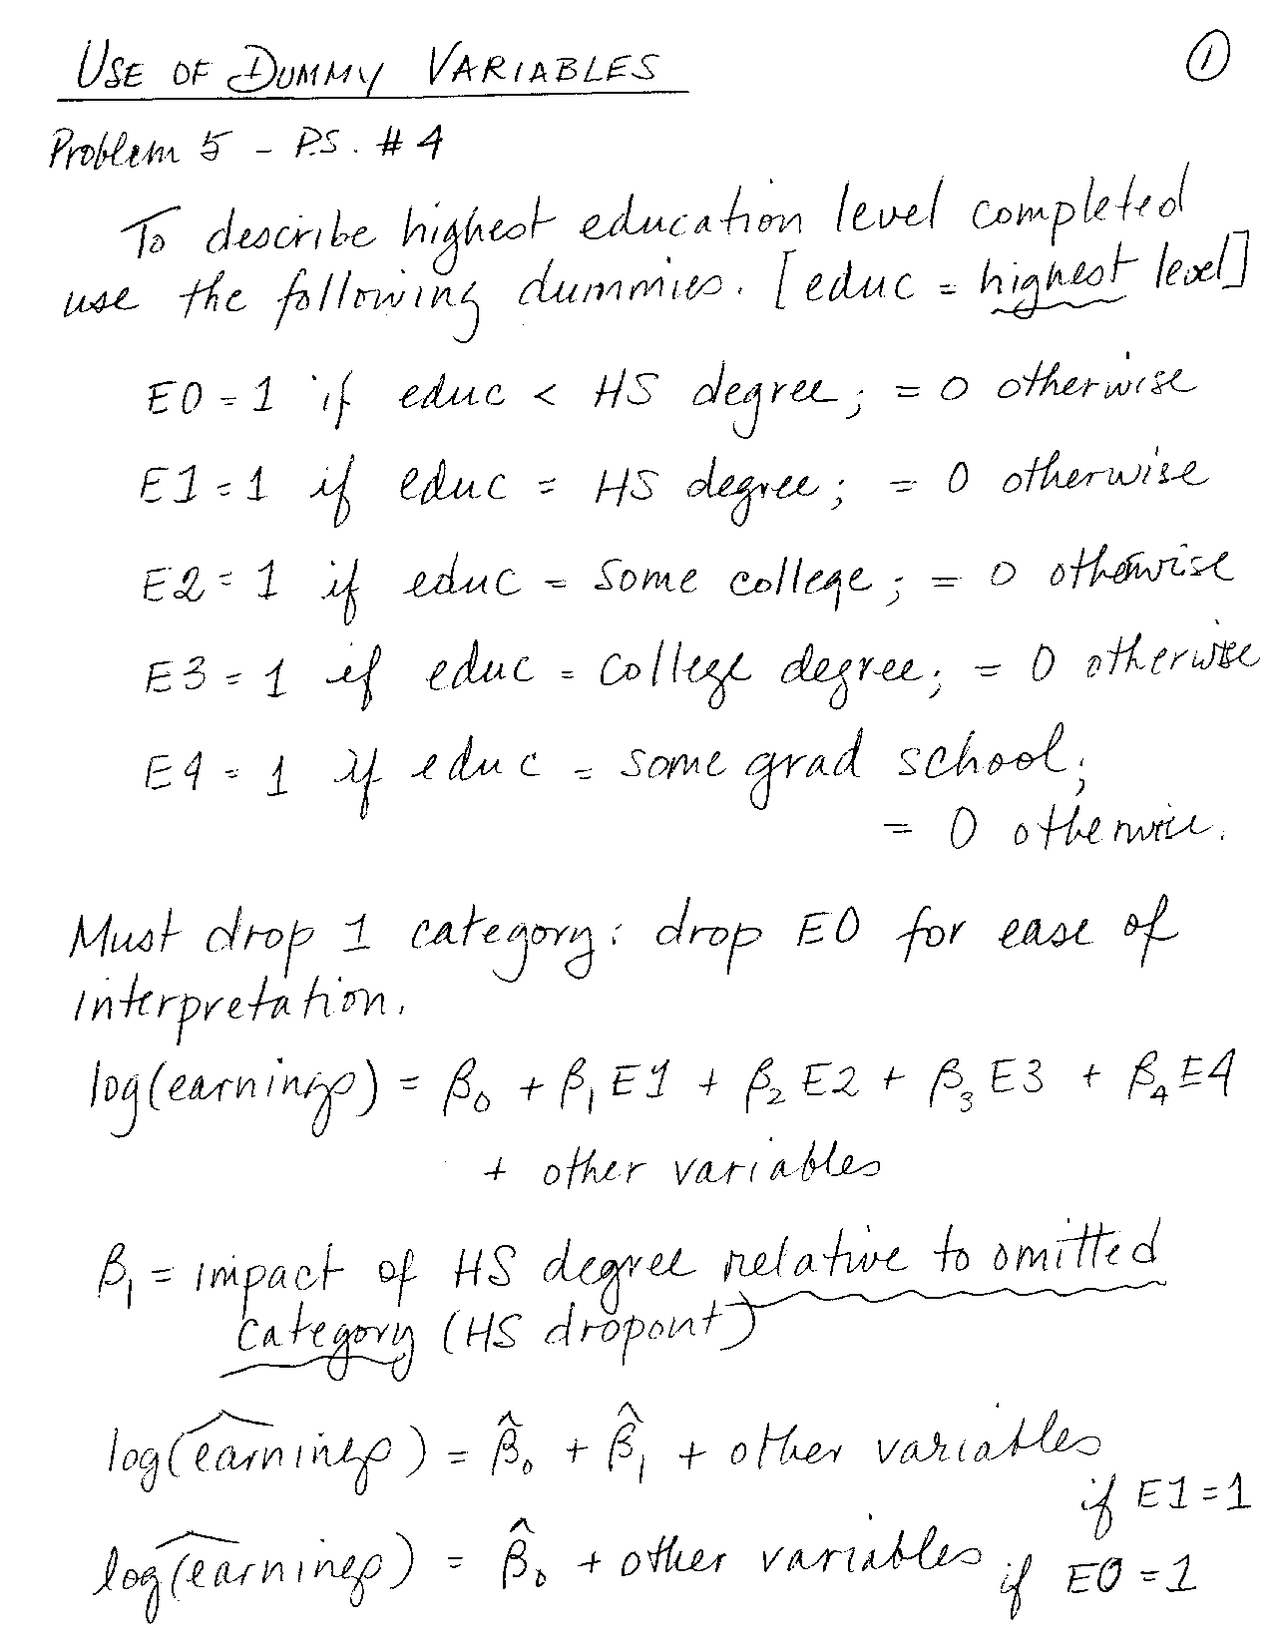 USE OF DUMMY VARIABLES ①
Problem 5 - P.S. # 4
To describe highest education level completed
use the following dummies. [educ = highest level]
E0 = 1 if educ < HS degree; = 0 otherwise
E1 = 1 if educ = HS degree; = 0 otherwise
E2 = 1 if educ = some college; = 0 otherwise
E3 = 1 if educ = college degree; = 0 otherwise
E4 = 1 if educ = some grad school;
= 0 otherwise.
Must drop 1 category: drop E0 for ease of
interpretation.
log(earnings) = β₀ + β₁E1 + β₂E2 + β₃E3 + β₄E4
+ other variables
β₁ = impact of HS degree relative to omitted
category (HS dropout)
log(earnings)^ = β̂₀ + β̂₁ + other variables
if E1 = 1
log(earnings)^ = β̂₀ + other variables if E0 = 1